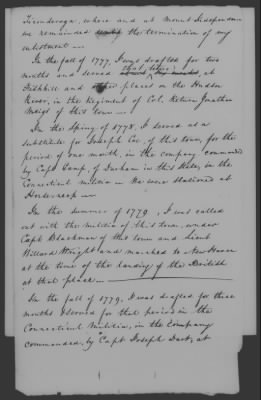 Ticonderoga, where and at Mount Independence
we remained the termination of my
enlistment —
In the fall of 1777, I was drafted for two
months and served that time, at
Fishkill and other places on the Hudson
River, in the Regiment of Col. Return Jonathan
Meigs of this town —
In the Spring of 1778, I served as a
substitute for Joseph Coe, of this town, for the
period of one month, in the company commanded
by Capt Camp, of Durham in this State, in the
Connecticut militia — We were stationed at
Horseneck —
In the summer of 1779, I was called
out with the militia of this town, under
Capt Blackman of this town and Lieut
Billard Wright and marched to New Haven
at the time of the landing of the British
at that place —
In the fall of 1779, I was drafted for three
months & served for that period in the
Connecticut Militia, in the Company
commanded by Capt Joseph at